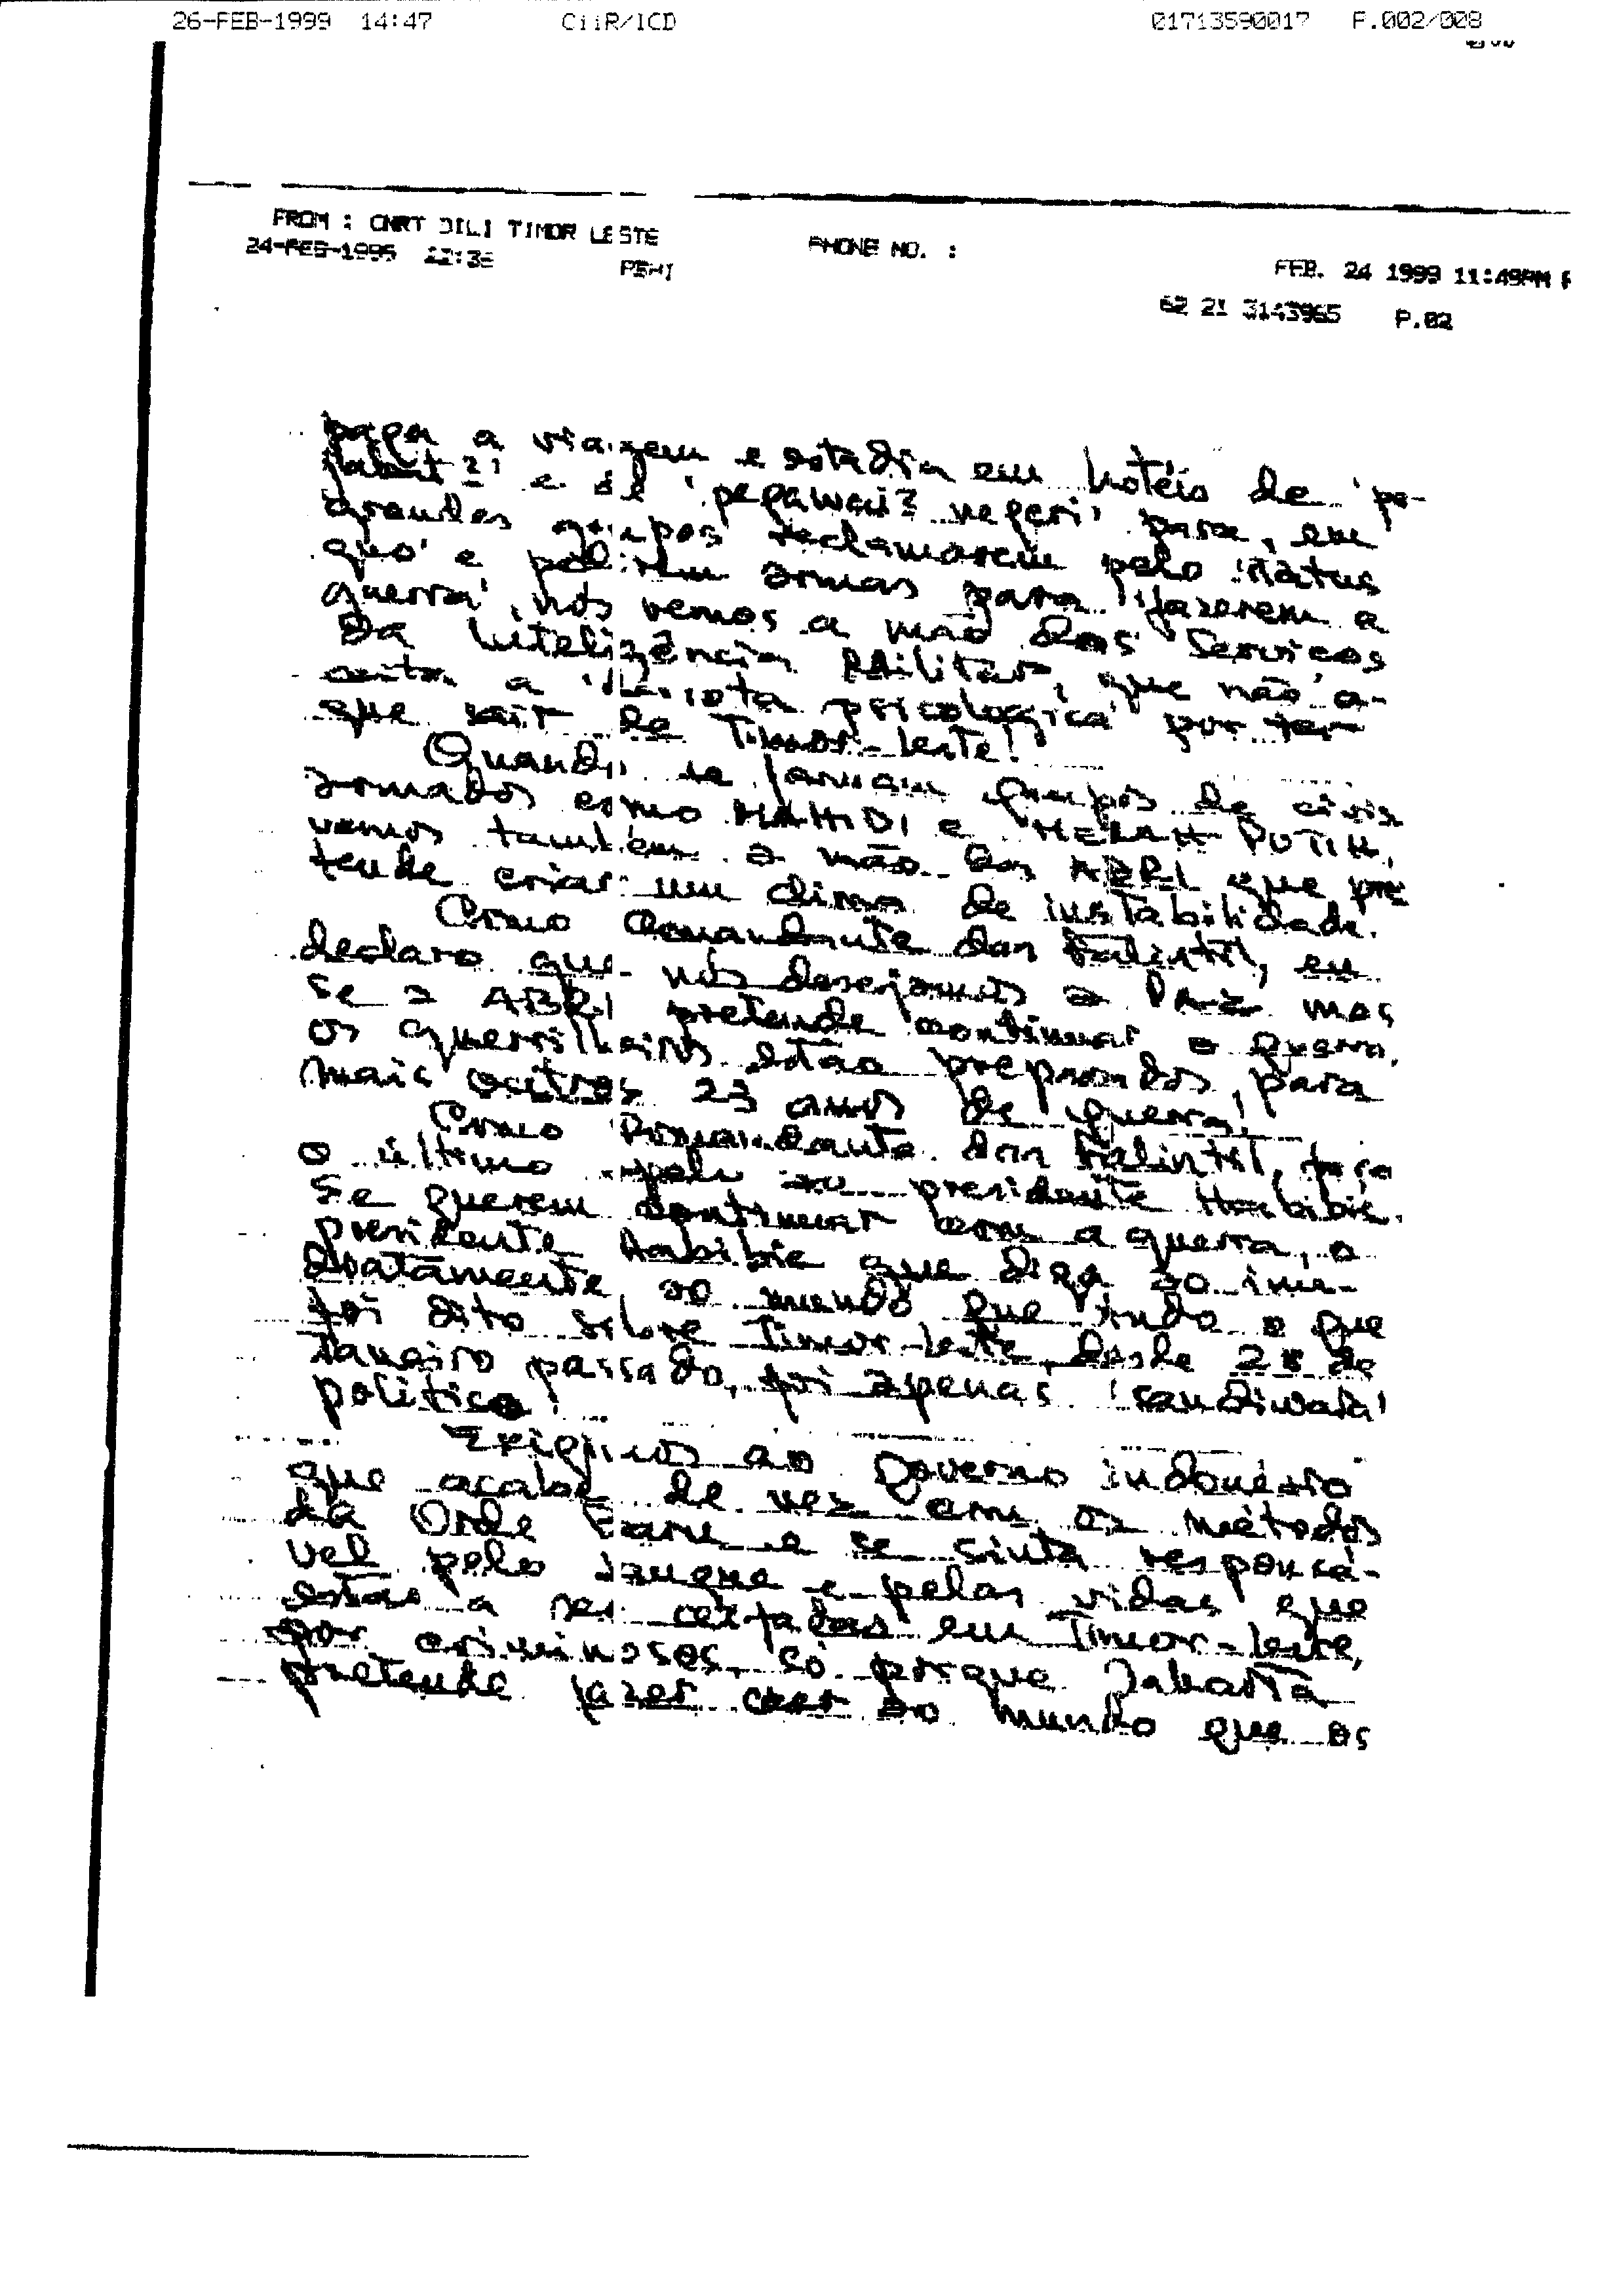 26-FEB-1999 14:47 CiiR/ICD 01713590017 P.002/008
FROM : CNRT DILI TIMOR LESTE PHONE NO. : FEB. 24 1999 11:49PM
24-FEB-1995 22:36 62 21 3143965 P.02
paga a viagem e estadia em hotéis de 'pe-
jabat2' e de 'pegawai2 negeri' para, em
grandes grupos reclamarem pelo 'status
quo' e pedirem armas para 'fazerem a
guerra', nós vemos a mão dos Serviços
da Inteligência Militar, que não a-
ceitam a 'derrota psicológica' por ter
que sair de Timor-Leste!
Quando se formam grupos de civis
armados como MAHIDI e MERAH PUTIH,
vemos também a mão das ABRI que pre
tende criar um clima de instabilidade.
Como Comandante das Falintil, eu
declaro que nós desejamos a Paz mas
se a ABRI pretende continuar a guerra,
os guerrilheiros estão preparados, para
mais outros 23 anos de guerra!
Como Comandante das Falintil, faço
o último apelo ao presidente Habibie.
Se querem continuar com a guerra, o
presidente Habibie que diga ao ime-
diatamente ao mundo que tudo o que
foi dito sobre Timor-Leste, desde 28 de
Janeiro passado, foi apenas 'sandiwara'
político!
Exigimos ao Governo indonésio
que acabe de vez com os métodos
da Orde Baru e se sinta responsá-
vel pelo sangue e pelas vidas que
estão a ser ceifadas em Timor-Leste,
por criminosos, só porque Jakarta
pretende fazer crer ao mundo que os